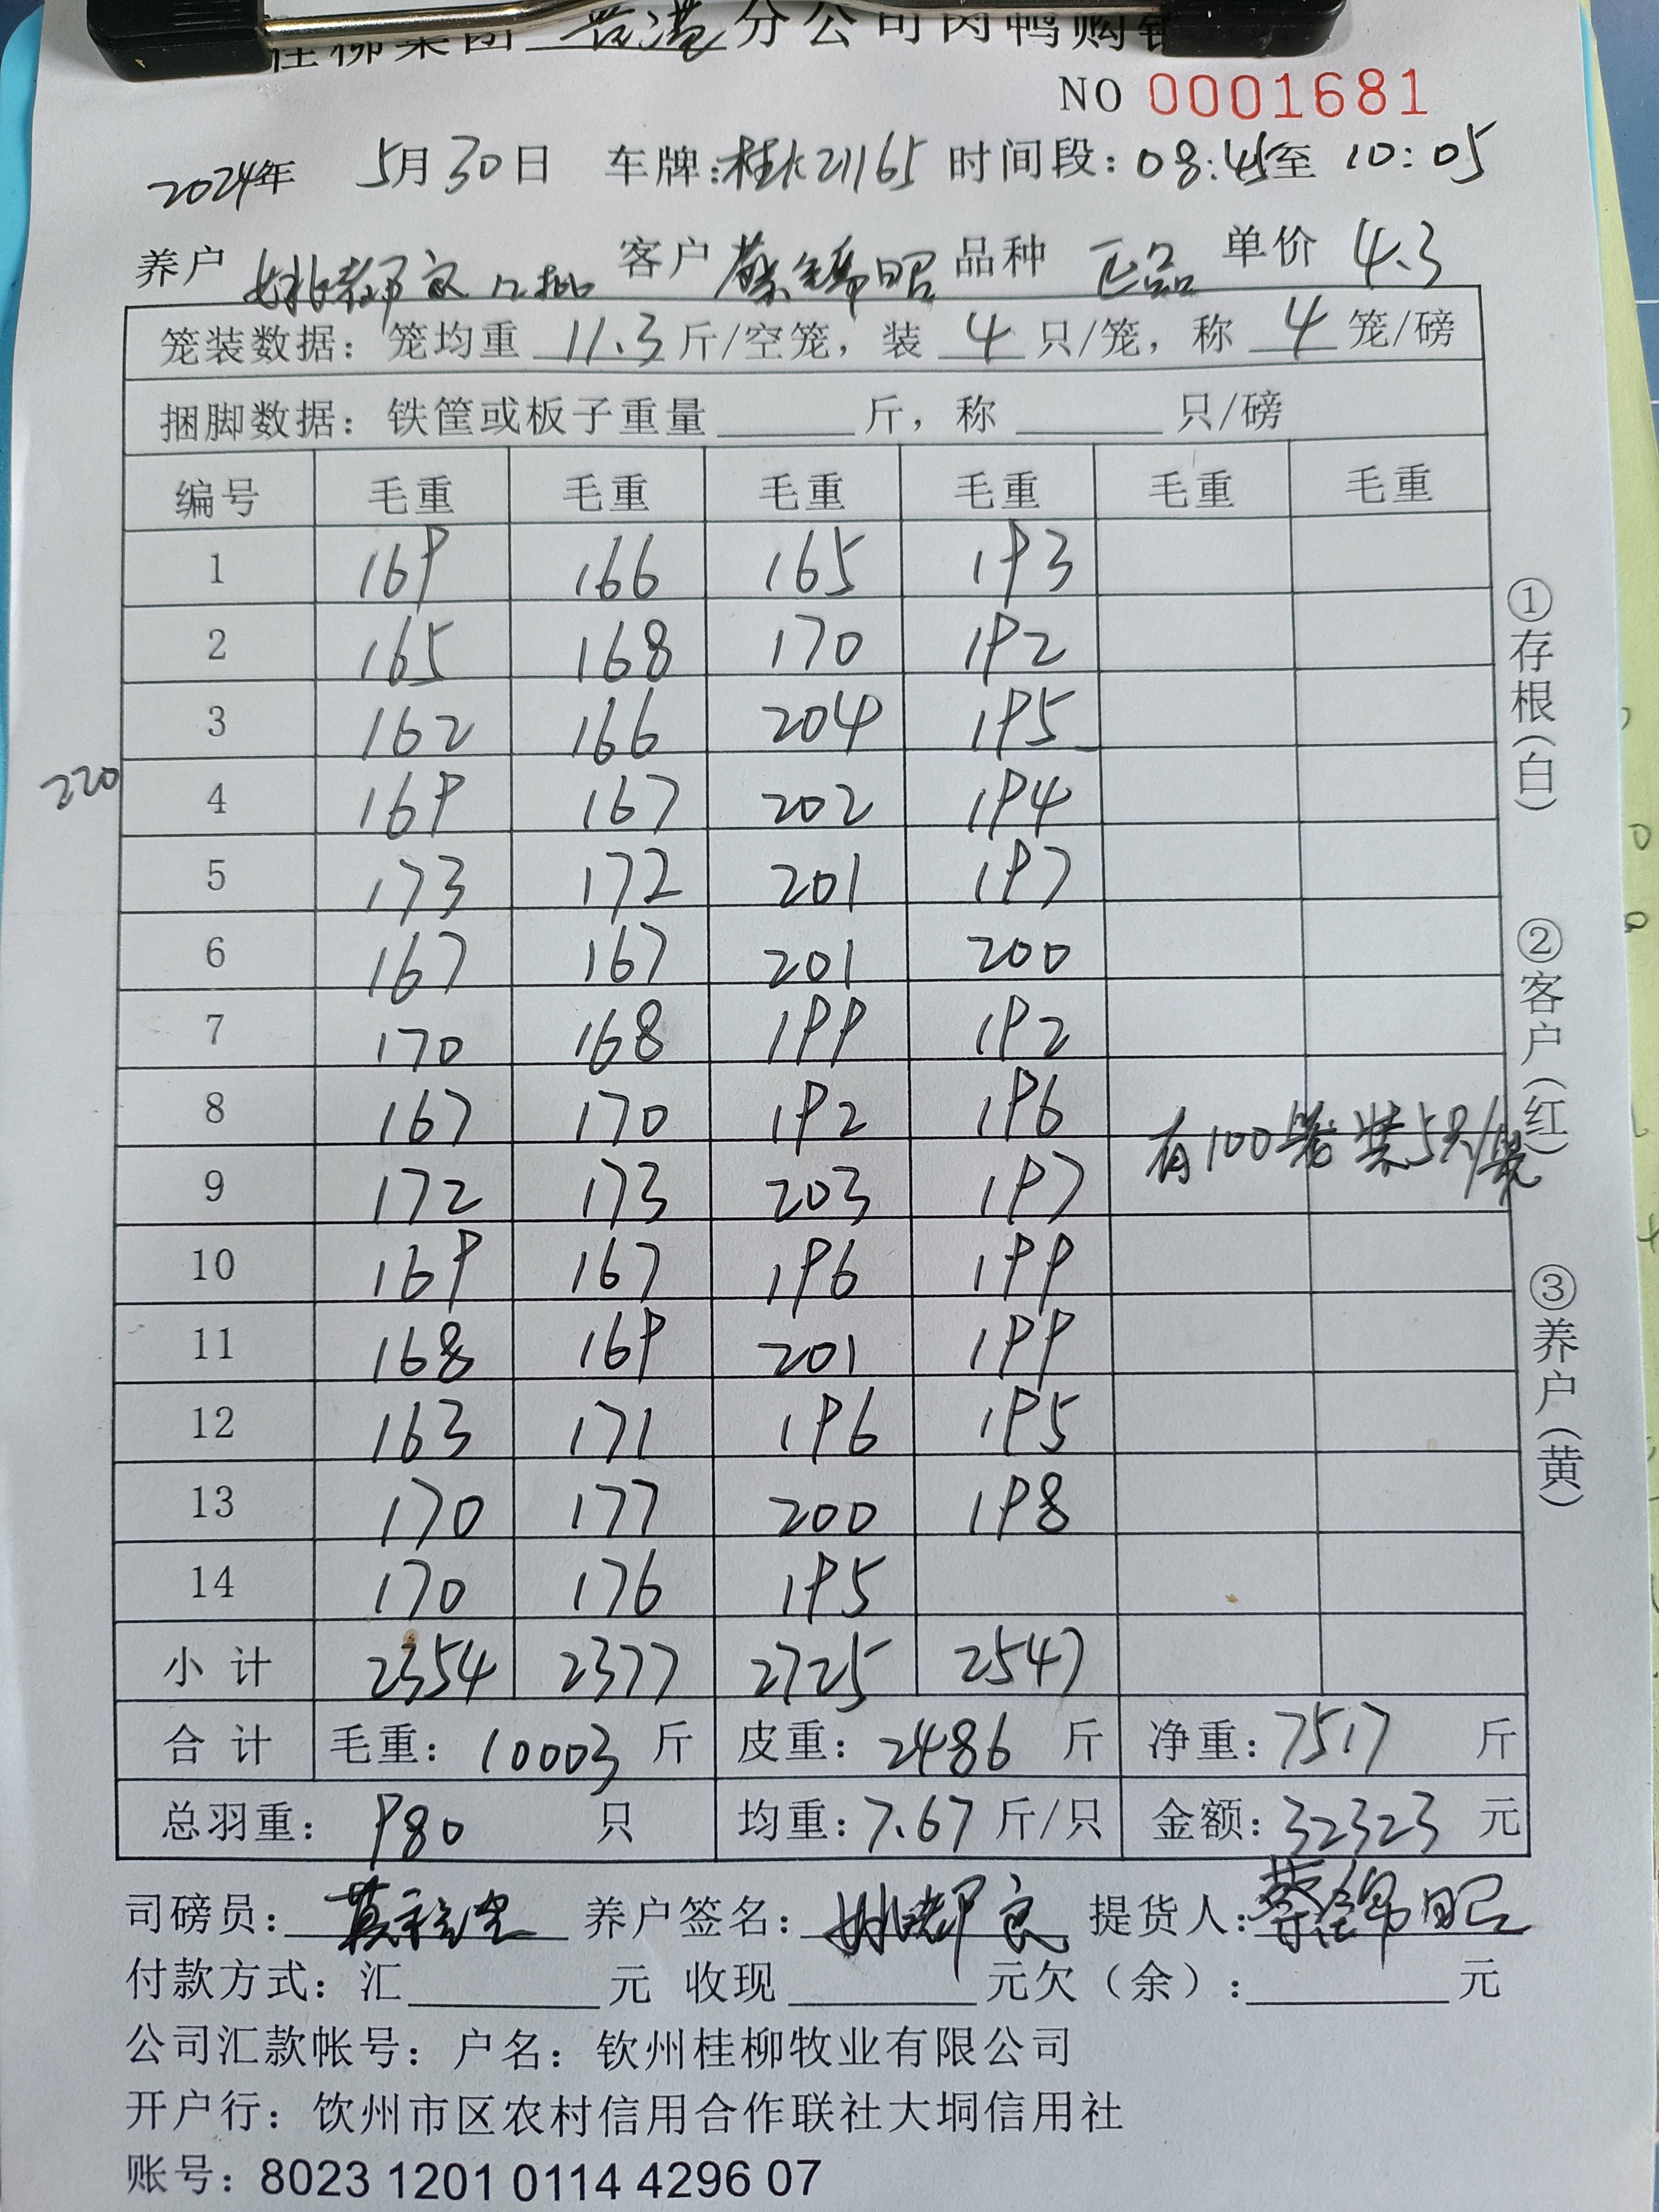 桂柳集团 分公司肉鸭购销
NO 0001681
2024年 5月30日 车牌:桂K21165 时间段:08:45至 10:05
养户 客户 蔡锦昭 品种 正品 单价 4.3
笼装数据:笼均重 11.3 斤/空笼,装 4 只/笼,称 4 笼/磅
捆脚数据:铁筐或板子重量 斤,称 只/磅
编号 毛重 毛重 毛重 毛重 毛重 毛重
1 169 166 165 193
2 165 168 170 192
3 162 166 204 195
220
4 169 167 202 194
5 173 172 201 197
6 167 167 201 200
7 170 168 199 192
8 167 170 192 196
有100笼装5只/笼
9 172 173 203 197
10 169 167 196 199
11 168 169 201 199
12 163 171 196 195
13 170 177 200 198
14 170 176 195
小计 2354 2377 2725 2547
合计 毛重:10003斤 皮重:2486 斤 净重:7517 斤
总羽重:980 只 均重:7.67 斤/只 金额:32323 元
①存根(白) ②客户(红) ③养户(黄)
司磅员: 养户签名: 提货人:蔡锦昭
付款方式:汇 元 收现 元欠(余): 元
公司汇款帐号:户名:钦州桂柳牧业有限公司
开户行:饮州市区农村信用合作联社大垌信用社
账号:8023 1201 0114 4296 07